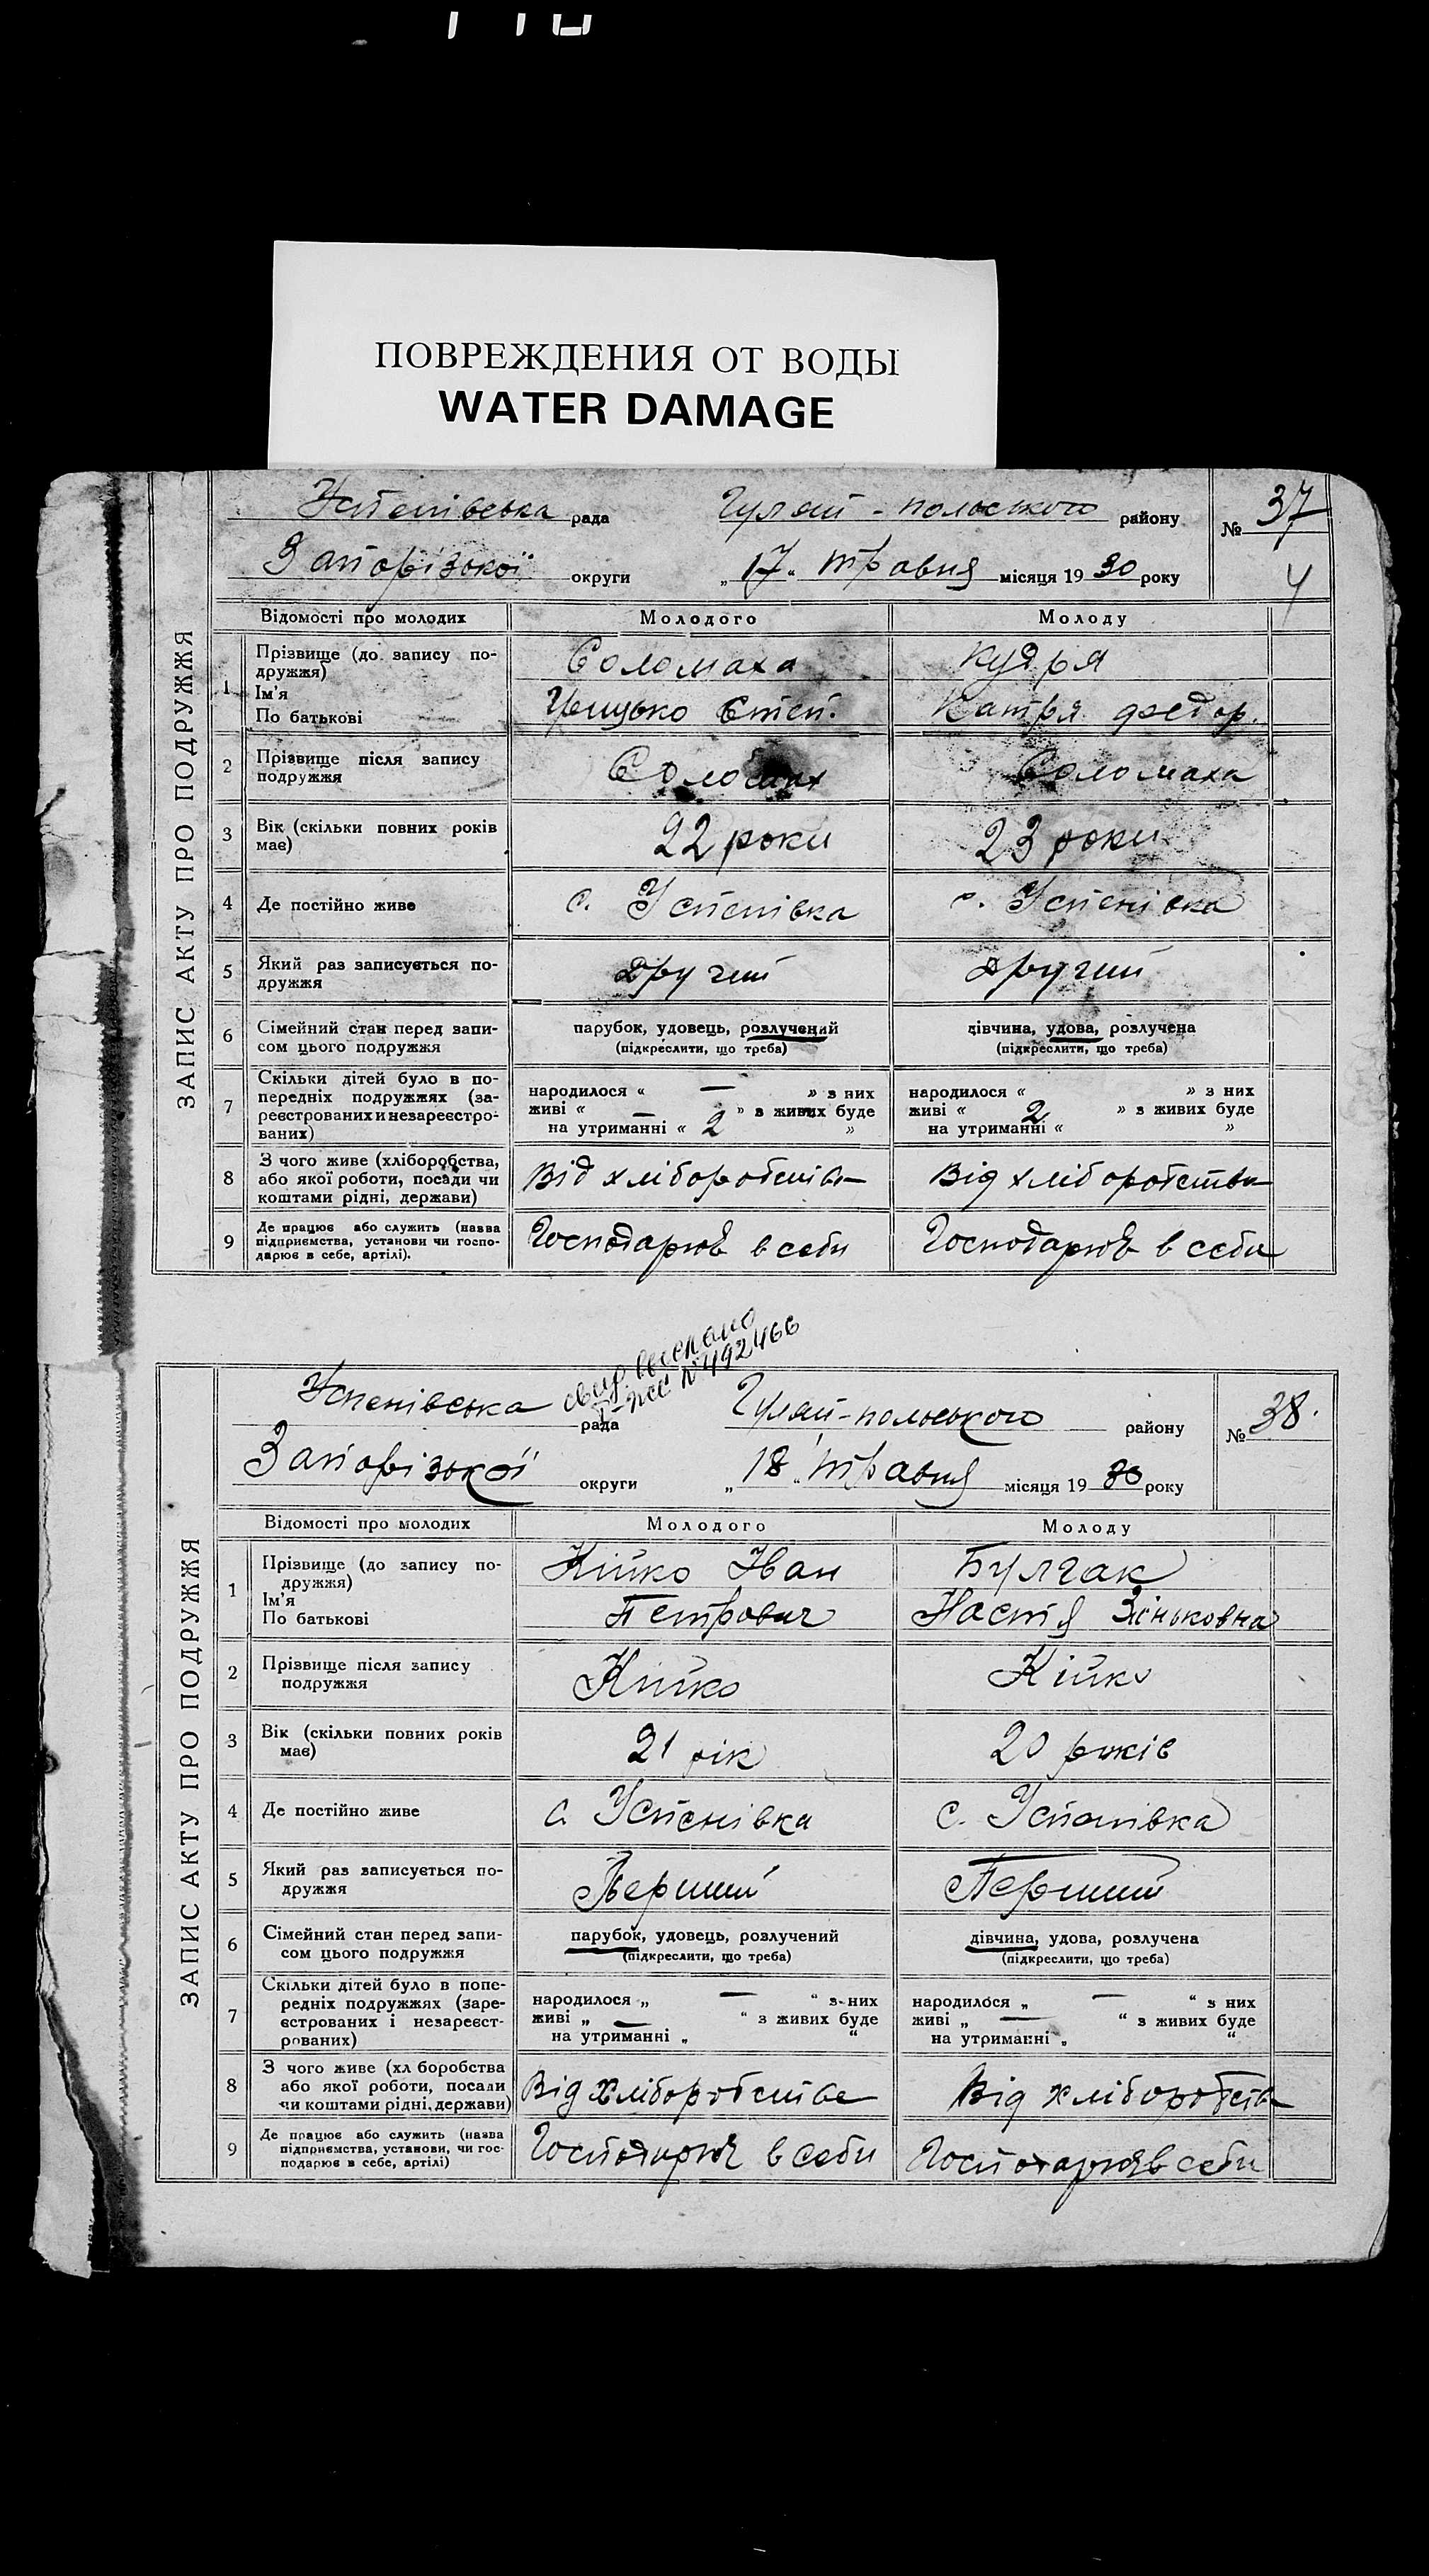 ПОВРЕЖДЕНИЯ ОТ ВОДЫ
WATER DAMAGE
ЗАПИС АКТУ ПРО ПОДРУЖЖЯ
Успенівська рада Гуляй-польського району № 37
Запорізької округи „17“ травня місяця 1930 року
Відомості про молодих Молодого Молоду
1 Прізвище (до запису по-
дружжя) Соломаха
Ім'я
По батькові Грицько Степ. Катря Федор.
2 Прізвище після запису
подружжя Соломаха Соломаха
3 Вік (скільки повних років
має) 22 роки 23 роки
4 Де постійно живе с. Успенівка с. Успенівка
5 Який раз записується по-
дружжя другий другий
6 Сімейний стан перед запи-
сом цього подружжя парубок, удовець, розлучений дівчина, удова, розлучена
(підкреслити, що треба) (підкреслити, що треба)
7 Скільки дітей було в по-
передніх подружжях (за-
реєстрованих и незареєстро-
ваних) народилося « — » з них народилося « » з них
живі « — » з живих буде живі « 2 » з живих буде
на утриманні « 2 » на утриманні « »
8 З чого живе (хліборобства,
або якої роботи, посади чи
коштами рідні, держави) Від хліборобства Від хліборобства
9 Де працює або служить (назва
підприємства, установи чи госпо-
дарює в себе, артілі). Господарює в себи Господарює в себи
№ 492466
ЗАПИС АКТУ ПРО ПОДРУЖЖЯ
Успенівська рада Гуляй-польського району № 38.
Запорізької округи „18“ травня місяця 1930 року
Відомості про молодих Молодого Молоду
1 Прізвище (до запису по-
дружжя) Кійко Іван Булгак
Ім'я
По батькові Петрович Настя Зіньковна
2 Прізвище після запису
подружжя Кійко Кійко
3 Вік (скільки повних років
має) 21 рік 20 років
4 Де постійно живе с. Успенівка с. Успенівка
5 Який раз записується по-
дружжя Перший Перший
6 Сімейний стан перед запи-
сом цього подружжя парубок, удовець, розлучений дівчина, удова, розлучена
(підкреслити, що треба) (підкреслити, що треба)
7 Скільки дітей було в попе-
редніх подружжях (заре-
єстрованих і незареєст-
рованих) народилося „ — “ з них народилося „ — “ з них
живі „ — “ з живих буде живі „ — “ з живих буде
на утриманні „ “ на утриманні „ “
8 З чого живе (хл боробства
або якої роботи, посади
чи коштами рідні, держави) Від хліборобства Від хліборобств
9 Де працює або служить (назва
підприємства, установи, чи гос-
подарює в себе, артілі) Господарює в себи Господарює в себи